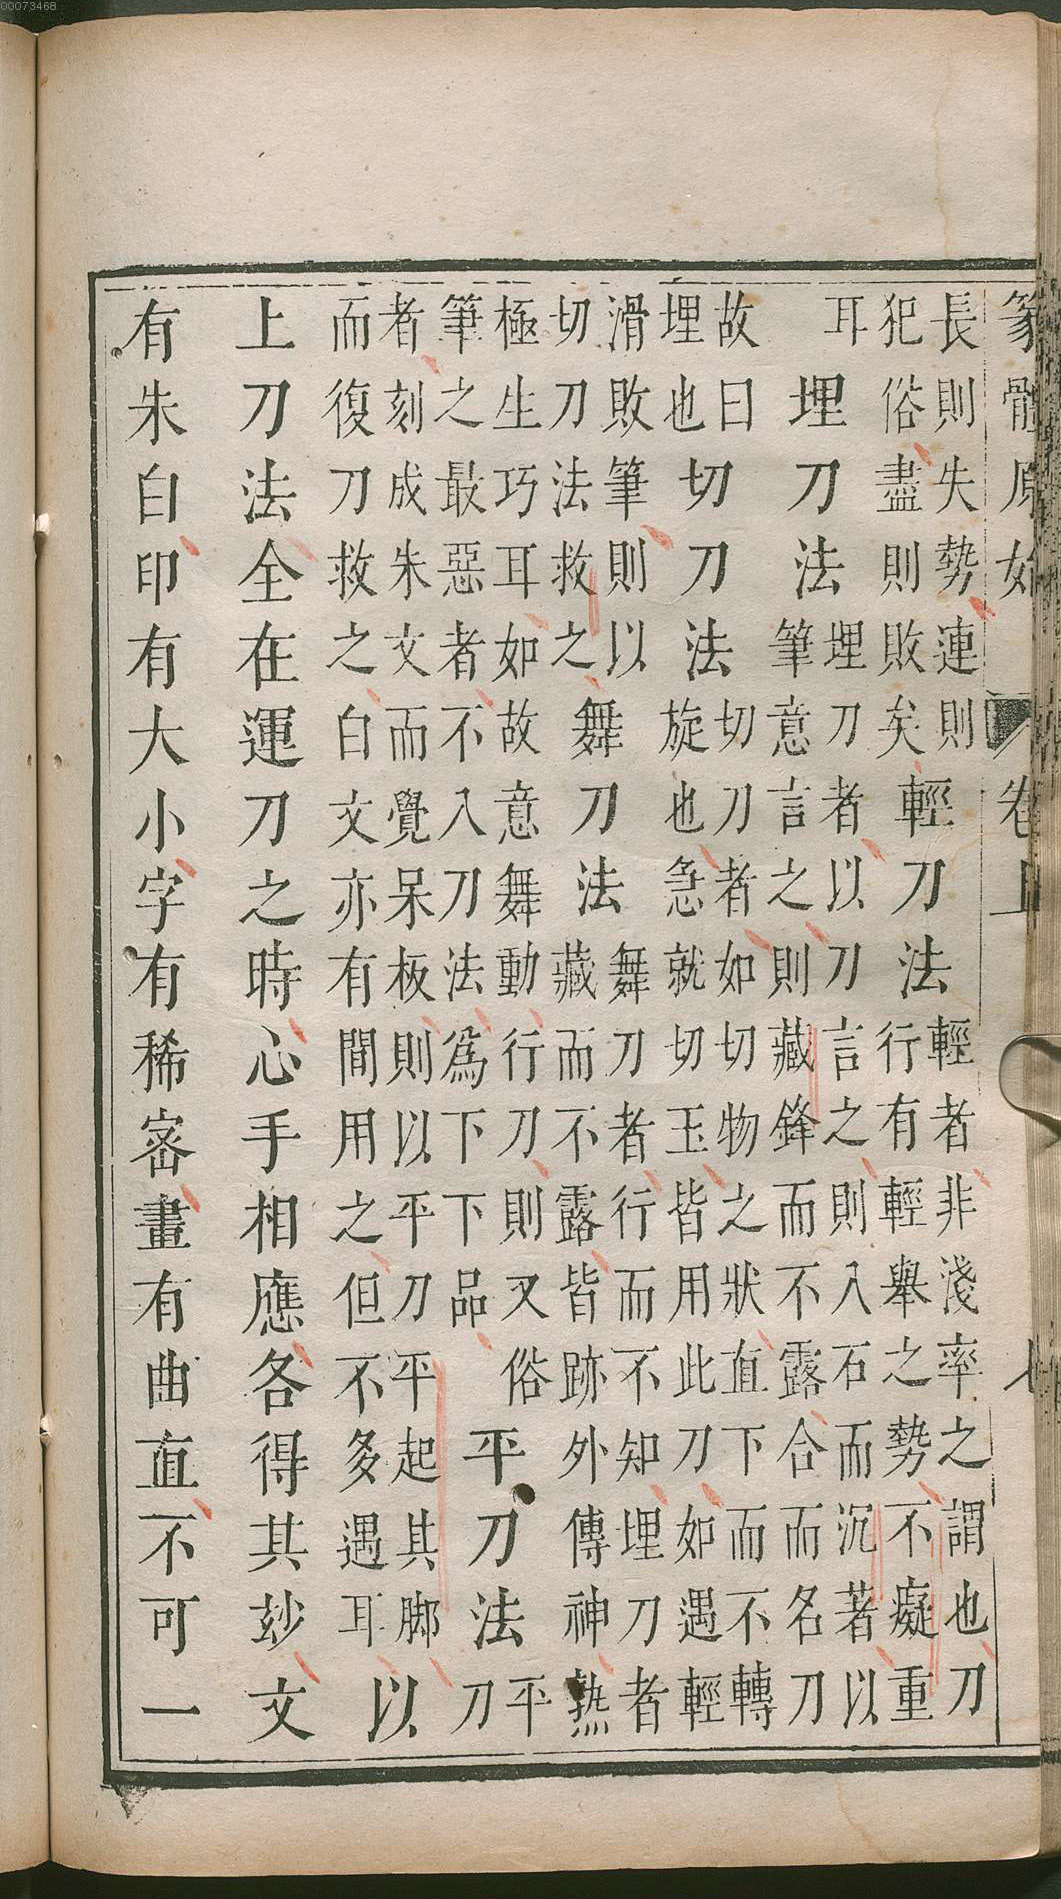 篆體原始 卷上 七
長則失勢連則
犯俗盡則敗矣
輕刀法
輕者非淺率之謂也刀
行有輕舉之勢不癡重
耳
埋刀法
埋刀者以刀言之則入石而沉著以
筆意言之則藏鋒而不露合而名刀
故曰
埋也
切刀法
切刀者如切物之狀直下而不轉
旋也急就切玉皆用此刀如遇輕
滑敗筆則以
切刀法救之
舞刀法
舞刀者行而不知埋刀者
藏而不露皆跡外傳神熟
極生巧耳如故意舞動行刀則又俗
筆之最惡者不入刀法為下下品
平刀法
平
刀
者刻成朱文而覺呆板則以平刀平起其脚
而復刀救之白文亦有間用之但不多遇耳
以
上刀法全在運刀之時心手相應各得其玅文
有朱白印有大小字有稀密畫有曲直不可一